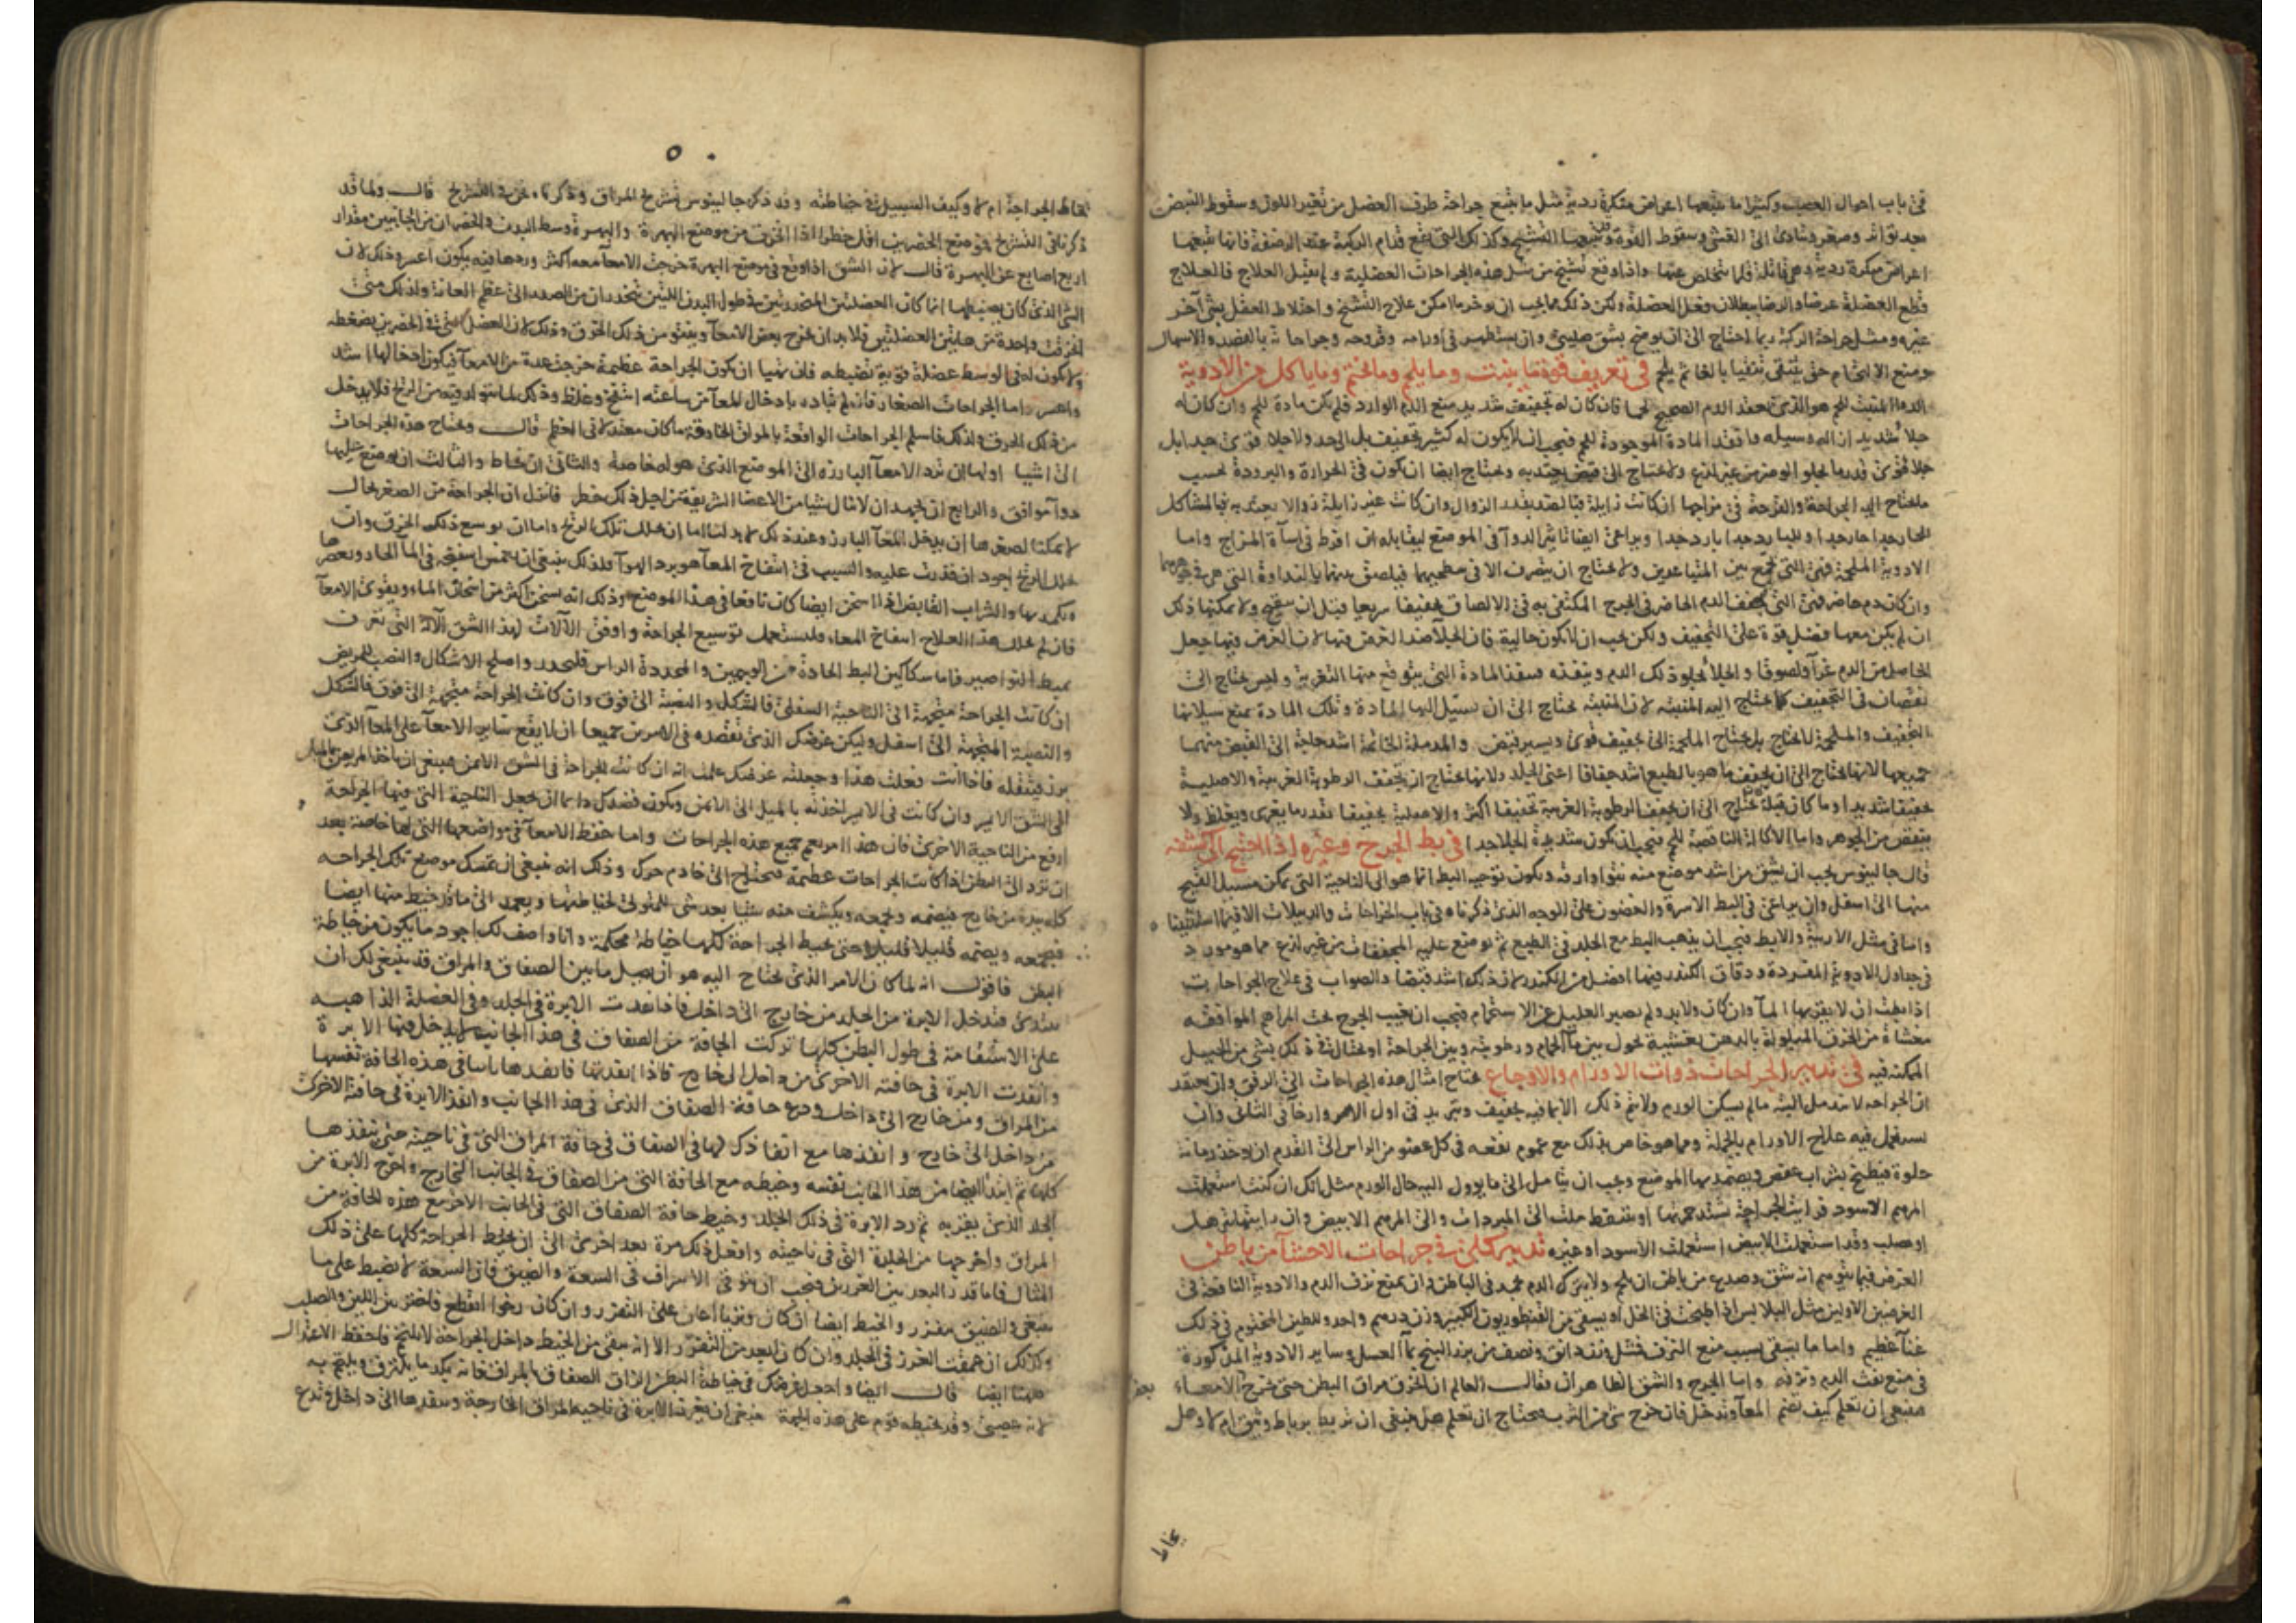 في باب احوال العصب وكثيرا ما يتبعها اعراض منكرة ردية مثل ما يتبع جراحة طرف العضل من تغير اللون وسقوط النبض
بعد تواتر وصغر ويتادى الى الغشى وسقوط القوة وقد يتبعها التشنج وكذلك التي تقع قدام الركبة عند الرضفة فانها يتبعها
اعراض منكرة ردية وهي قاتلة قلما يتخلص عنها واذا وقع تشنج من مثل هذه الجراحات العضلية ولم يقبل العلاج فالعلاج
قطع العضلة عرضا والرضا ببطلان فعل العضلة ولكن ذلك مما يجب ان يوخر ما امكن علاج التشنج واختلاط العقل بشى آخر
غيره ومثل جراحة الركبة ربما احتاج الى ان يوضع بشق صليبى وان يستظهر في اورامه وقروحه وجراحاته بالفصد والاسهال
ومنع الالتحام حتى يتنقى تنقيا بالغا ثم يلحم في تعريف قوة ما ينبت وما يلحم وما يختم وما ياكل من الادوية
الدواء المنبت للحم هو الذي يعقد الدم الصحيح لحما فان كان له تجفيف شديد منع الدم الوارد فلم يكن مادة للحم وان كان له
جلا شديد ازاله وسيله وافقد المادة الموجودة للحم فيجب ان لا يكون له كثير تجفيف بل الى حد ولا جلا قوى جدا بل
جلا قوى قدر ما يجلو الوضر من غير لذع ولا يحتاج الى قبض يعتد به ويحتاج ايضا ان يكون في الحرارة والبرودة بحسب
ما يحتاج اليه الجراحة والقرحة في مزاجها ان كانت زايلة فبالضد بقدر الزوال وان كانت غير زايلة زوالا يعتد به فبالمشاكل
للحار جدا حار جدا وللبارد جدا بارد جدا ويراعى ايضا تاثير الدوآ في الموضع ليقابله ان افرط في اسآة المزاج واما
الادوية الملحمة فهى التي تجمع بين المتباعدين ولا يحتاج ان يتصرف الا في سطحيهما فيلصق بينهما بالنداوة التي هي في جوهرهما
وان كان دم حاضر فهى التي تجفف الدم الحاضر في الجرح المكتفى به في الالصاق تجفيفا سريعا قبل ان يتقيح ولا يمكنها ذلك
ان لم يكن معها فضل قوة على التجفيف ولكن يجب ان لا يكون جالية فان الجلآ ضد الغرض فيها لان الغرض فيها جعل
الحاصل من الدم غرآ ولصوقا والجلا يجلو ذلك الدم وينقده فيفقد المادة التي يتوقع منها التغرية وليس يحتاج الى
نقصان في التجفيف كما يحتاج اليه المنبتة لان المنبتة يحتاج الى ان يسيل اليها المادة وتلك المادة يمنع سيلانها
التجفيف والملحمة لا يحتاج بل يحتاج الملحمة الى تجفيف قوى ويسير قبض والمدملة الخاتمة اشد حاجة الى القبض منهما
جميعها لانها يحتاج الى ان يجفف ما هو بالطبع اشد جفافا اعنى الجلد ولانها يحتاج ان يجفف الرطوبة الغريبة والاصلية
تجفيفا شديدا وما كان قبله يحتاج الى ان يجفف الرطوبة الغريبة تجفيفا اكثر والاصلية تجفيفا بقدر ما يغرى ويغلظ ولا
ينقص من الجوهر واما الاكالة الناقصة للحم فيجب ان يكون شديدة الجلا جدا في بط الجرح وغيره اذا احتيج الى كشفه
قال جالينوس يجب ان يشق من اشد موضع منه نتوا وارقه ويكون توجيه البط انما هو الى الناحية التي يمكن مسيل القيح
منها الى اسفل وان يراعى في البط الاسرة والغضون على الوجه الذي ذكرناه في باب الخراجات والدبيلات الا فيما استثنينا
واما في مثل الاربية والابط فيجب ان يذهب البط مع الجلد في الطبع ثم توضع عليه المجففات من غير لذع مما هو مورد
في جداول الادوية المفردة ودقاق الكندر فيها افضل من الكندر لان ذلك اشد قبضا والصواب في علاج الجراحات
اذا بطت ان لا يقربها المآ وان كان ولا بد ولم يصبر العليل عن الاستحمام فيجب ان يغيب الجرح تحت المراهم الموافقه
مغشاة من الخرق المبلولة بالدهن تغشية تحول بين مآ الحمام ورطوبته وبين الجراحة او يحتال في ذلك بشى من الحيل
الممكنة فيه في تدبير الجراحات ذوات الاورام والاوجاع يحتاج امثال هذه الجراحات الى الرفق وان يعتقد
ان الجراحه لا تندمل البتة ما لم يسكن الورم ولا يتم ذلك الا بما فيه تجفيف وتبريد في اول الامر وارخآ في الثاني وان
يستعمل فيه علاج الاورام بالجملة ومما هو خاص بذلك مع عموم نفعه في كل عضو من الراس الى القدم ان يوخذ رمانة
حلوة فيطبخ بشراب عفص ويضمد بها الموضع ويجب ان يتامل الى ما يوول اليه حال الورم مثل انك ان كنت استعملت
المرهم الاسود فرايت الجراحة تشتد حمرتها او تتنفط ملت الى المبردات والى المرهم الابيض وان رايتها تترهل
او تصلب وقد استعملت الابيض استعملت الاسود او غيره تدبير كلى في جراحات الاحشآ من باطن
الغرض فيما يتوهم انه شق وصدع من باطن ان يلحم ولا يترك الدم يجمد في الباطن وان يمنع نزف الدم والادوية النافعة في
الغرضين الاولين مثل البلابس اذا طبخت في الخل او يسقى من القنطوريون الكبير وزن درهم واحد وللطين المختوم في ذلك
غنآ عظيم واما ما يسقى بسبب منع النزف فمثل وزن دانق ونصف من بزر البنج بمآ العسل وساير الادوية المذكورة
في منع نفث الدم ونزفه واما الجرح والشق الظاهر ان فقال العالم ان انخرق مراق البطن حتى يخرج الامعاء بعض
فينبغى ان تعلم كيف تضم المعآ وتدخل فان خرج شى من الثرب فيحتاج ان تعلم هل ينبغى ان تربط برباط وثيق ام لا وهل
يخاط
يخاط الجراحة ام لا وكيف السبيل في خياطته وقد ذكر جالينوس تشريح المراق وذكرناه نحن في التشريح قال ولما قد
ذكرنا في التشريح فموضع الخصرين اقل خطرا اذا انخرق من موضع البهرة والبهرة وسط البدن والخصران من الجانبين مقدار
اربع اصابع عن البهرة قال لان الشق اذا وقع في موضع البهرة خرجت الامعآ معه اكثر وردها فيه يكون اعسر وذلك لان
الشى الذي كان يضبطها انما كان العضلتين المنحدرتين في طول البدن اللتين تنحدران من الصدر الى عظم العانة ولذلك متى
انخرقت واحدة من هاتين العضلتين فلا بد ان يخرج بعض الامعآ وينتو من ذلك الخرق وذلك لان العضل التي في الخصرين يضغطه
ولا يكون له في الوسط عضلة قوية تضبطه فان تهيا ان يكون الجراحة عظيمة خرجت عدة من الامعآ فيكون ادخالها اشد
واعسر واما الجراحات الصغار فانه ان لم تبادر بادخال المعآ من ساعته انتفخ وغلظ وذلك لما يتولد فيه من الريح فلا يدخل
من ذلك الخرق ولذلك فاسلم الجراحات الواقعة بالمراق الخارقة ما كان معتدلا في العظم قال ويحتاج هذه الجراحات
الى اشيا اولها ان ترد الامعآ البارزه الى الموضع الذي هو لها خاصة والثاني ان يخاط والثالث ان يوضع عليها
دوآ موافق والرابع ان يجهد ان لا ينال شيا من الاعضا الشريفة من اجل ذلك خطر فانزل ان الجراحة من الصغر بحال
لا يمكننا لصغرها ان يدخل المعآ البارز وعند ذلك لا بد لنا اما ان نحلل تلك الريح واما ان نوسع ذلك الخرق وان
تحلل الريح اجود ان قدرت عليه والسبب في انتفاخ المعآ هو برد الهوآ فلذلك ينبغى ان يغمس اسفنجة في المآ الحار ويعصرها
ويكمد بها والشراب القابض اذا اسخن ايضا كان نافعا في هذا الموضع وذلك انه يسخن اكثر من اسخان الماء ويقوى الامعآ
فان لم يحلل هذا العلاج انتفاخ المعاء فليستعمل توسيع الجراحة واوفق الآلات لهذا الشق الآلة التي تعرف
بمبط النواصير فاما سكاكين البط الحادة من الوجهين والمحددة الراس فليحذر واصلح الاشكال والنصب للمريض
ان كانت الجراحة متجهة الى الناحية السفلى فالشكل والنصبة الى فوق وان كانت الجراحة متجهة الى فوق فالشكل
والنصبة المتجهة الى اسفل وليكن غرضك الذي تقصده في الامرين جميعا ان لا يقع ساير الامعآ على المعآ الذي
برز فيثقله فاذا انت فعلت هذا وجعلته غرضك علمت انه ان كانت الجراحة في الشق الايمن فينبغى ان ياخذ المريض بالميل
الى الشق الايسر وان كانت في الايسر اخذته بالميل الى الايمن ويكون قصدك دايما ان تجعل الناحية التي فيها الجراحة
ارفع من الناحية الاخرى فان هذا امر يعم جميع هذه الجراحات واما حفظ الامعآ في مواضعها التي لها خاصة بعد
ان ترد الى البطن اذا كانت الجراحات عظيمة فيحتاج الى خادم جزل وذلك انه ينبغى ان يمسك موضع تلك الجراحه
كله بيده من خارج فيضمه ويجمعه ويكشف منه شيا بعد شى للمتولى لخياطتها ويعمد الى ما قد خيط منها ايضا
فيجمعه ويضمه قليلا قليلا حتى يخيط الجراحة كلها خياطة محكمة وانا واصف لك اجود ما يكون من خياطة
البطن فاقول انه لما كان الامر الذي يحتاج اليه هو ان يصل ما بين الصفاق والمراق قد ينبغى لك ان
تبتدى فتدخل الابرة من الجلد من خارج الى داخل فاذا نفذت الابرة في الجلد وفي العضلة الذاهبه
على الاستقامة في طول البطن كلها تركت الحافة من الصفاق في هذا الجانب لا يدخل فيها الابرة
وانفذت الابرة في حافته الاخرى من داخل الى خارج فاذا انفذتها فانفذها ثانيا في هذه الحافة نفسها
من المراق ومن خارج الى داخل ودع حافة الصفاق الذي في هذا الجانب وانفذ الابرة في حافته الاخرى
من داخل الى خارج وانفذها مع انفاذك لها في الصفاق في حافة المراق التي في ناحيته حتى ينفذها
كلها ثم ابتدا ايضا من هذا الجانب نفسه وخيطه مع الحافة التي من الصفاق في الجانب الخارج واخرج الابرة من
الجلد الذي بقربه ثم رد الابرة في ذلك الجلد وخيط حافة الصفاق التي في الجانب الاخر مع هذه الحافة من
المراق واخرجها من الجلدة التي في ناحيته وافعل ذلك مرة بعد اخرى الى ان يخيط الجراحة كلها على ذلك
المثال فاما قدر البعد بين الغرزين فيجب ان يوقى الاسراف في السعة والضيق فان السعة لا تضبط على ما
ينبغى والضيق يتفزر والخيط ايضا ان كان وتريا اعان على التفزر وان كان رخوا انقطع فاختر بين اللين والصلب
وكذلك ان عمقت الغرز في الجلد وان كان ابعد من التفزر الا انه يبقى من الخيط داخل الجراحة لا يلتحم فاحفظ الاعتدال
ههنا ايضا قال ايضا واجعل غرضك في خياطة البطن الزاق الصفاق بالمراق فانه بكد ما يلتزق ويلتحم به
لانه عصبى وقد يخيطه قوم على هذه الجهة ينبغى ان يغرز الابرة في ناحية المراق الخارجة وينفذها الى داخل وتدع